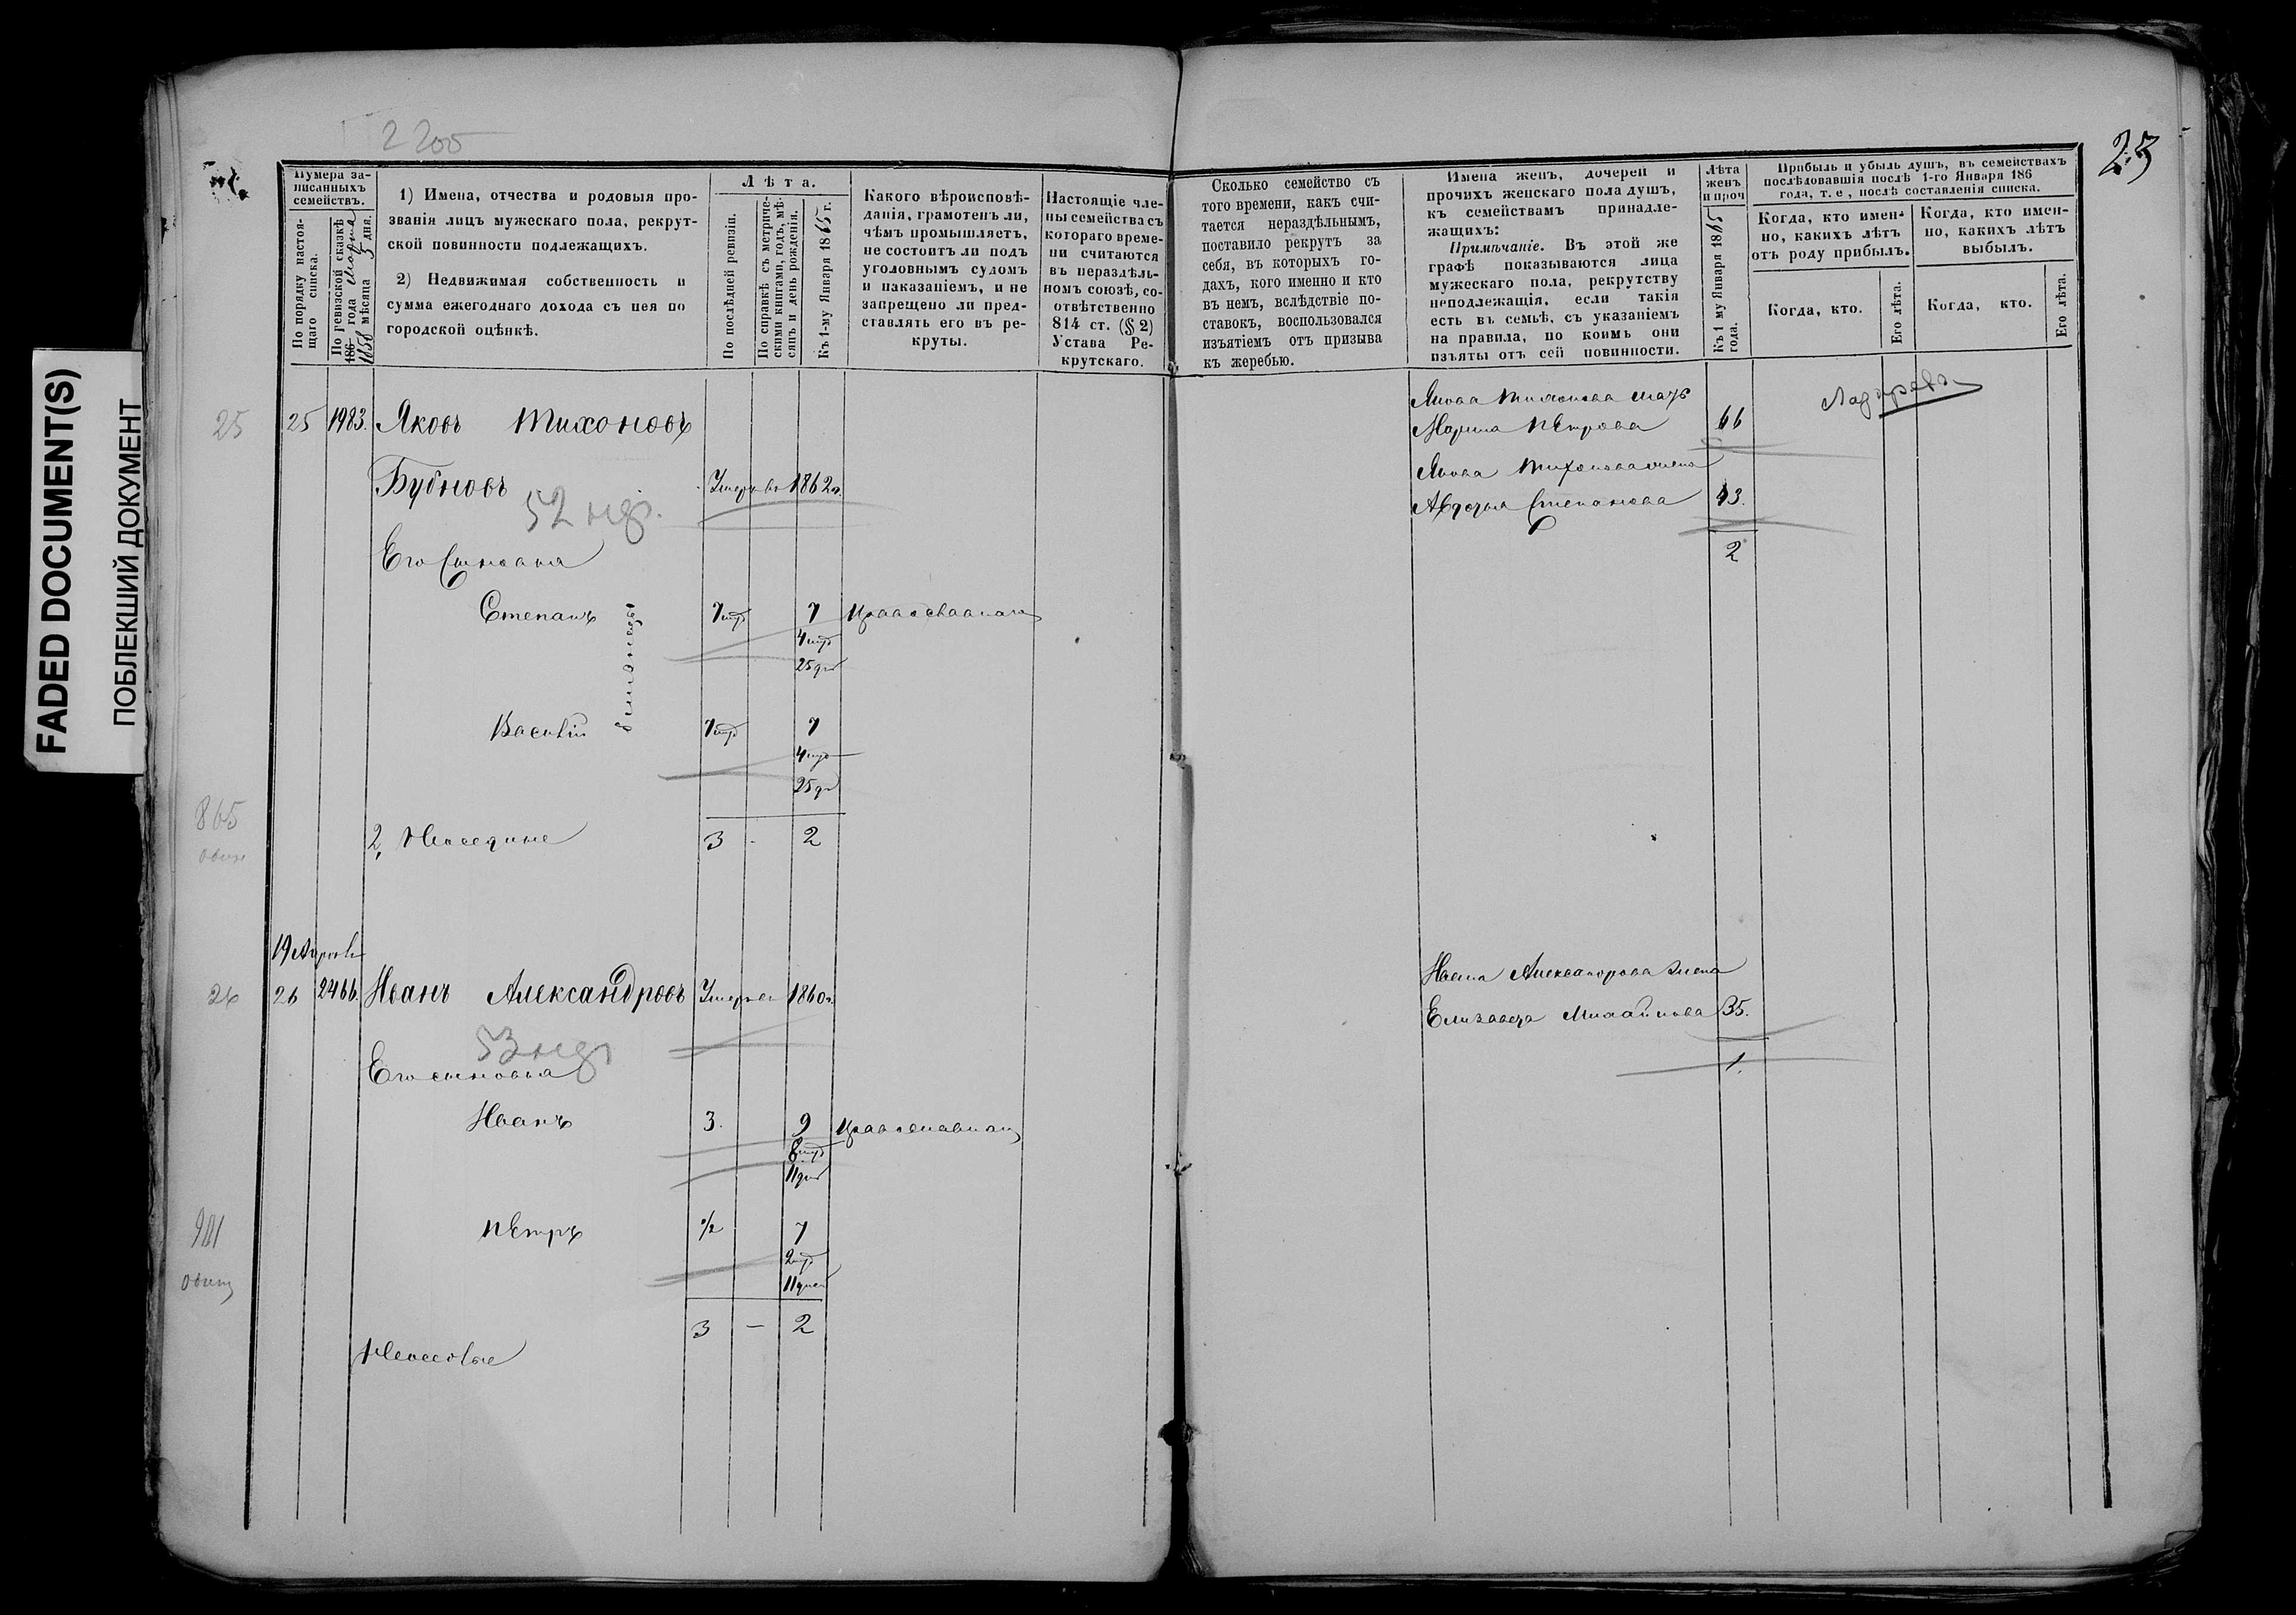 FADED DOCUMENT(S)
ПОБЛЕКШИЙ ДОКУМЕНТ
2200
23
Нумера за-
писанныхъ
семействъ.
По порядку настоя-
щаго списка.
По ревизской сказкѣ
186 года Марта
1858 мѣсяца 5 дня.
1) Имена, отчества и родовыя про-
званія лицъ мужескаго пола, рекрут-
ской повинности подлежащихъ.
2) Недвижимая собственность и
сумма ежегоднаго дохода съ нея по
городской оцѣнкѣ.
Лѣта.
По послѣдней ревизіи.
По справкѣ съ метриче-
скими книгами, годъ, мѣ-
сяцъ и день рожденія.
Къ 1-му Января 1865 г.
Какого вѣроисповѣ-
данія, грамотенъ ли,
чѣмъ промышляетъ,
не состоитъ ли подъ
уголовнымъ судомъ
и наказаніемъ, и не
запрещено ли пред-
ставлять его въ ре-
круты.
Настоящіе чле-
ны семейства съ
котораго време-
ни считаются
въ нераздѣль-
номъ союзѣ, со-
отвѣтственно
814 ст. (§ 2)
Устава Ре-
крутскаго.
Сколько семейство съ
того времени, какъ счи-
тается нераздѣльнымъ,
поставило рекрутъ за
себя, въ которыхъ го-
дахъ, кого именно и кто
въ немъ, вслѣдствіе по-
ставокъ, воспользовался
изъятіемъ отъ призыва
къ жеребью.
Имена женъ, дочерей и
прочихъ женскаго пола душъ,
къ семействамъ принадле-
жащихъ:
Примѣчаніе. Въ этой же
графѣ показываются лица
мужескаго пола, рекрутству
неподлежащія, если такія
есть въ семьѣ, съ указаніемъ
на правила, по коимъ они
изъяты отъ сей повинности.
Лѣта
женъ
и проч
Къ 1 му Января 1865
года.
Прибыль и убыль душъ, въ семействахъ
послѣдовавшія послѣ 1-го Января 186
года, т. е, послѣ составленія списка.
Когда, кто имен-
но, какихъ лѣтъ
отъ роду прибылъ.
Когда, кто имен-
но, какихъ лѣтъ
выбылъ.
Когда, кто.
Его лѣта.
Когда, кто.
Его лѣта.
25 25 1983. Яковъ Тихоновъ
Бубновъ Умеръ въ 1862 г.
52
Его Сыновья
Степанъ 7 мѣ 7 Православнаго
4 мѣ
25 дн
близнецы
Василій 7 мѣ 7
4 мѣ
25 дн
865
2, 3 - 2
Якова Тихонова мать
Марина Петрова 66
Якова Тихонова жена
Авдотья Степанова 43.
2
19 Апрѣля
26 26 2466. Иванъ Александровъ Умеръ въ 1860 г.
53
Его сыновья
Иванъ 3. 9 Православнаго
8 мѣ
11 дн
Петръ 1/2 7
2 мѣ
11 дней
3 — 2
Ивана Александрова жена
Елизавета Михайлова 35.
1.